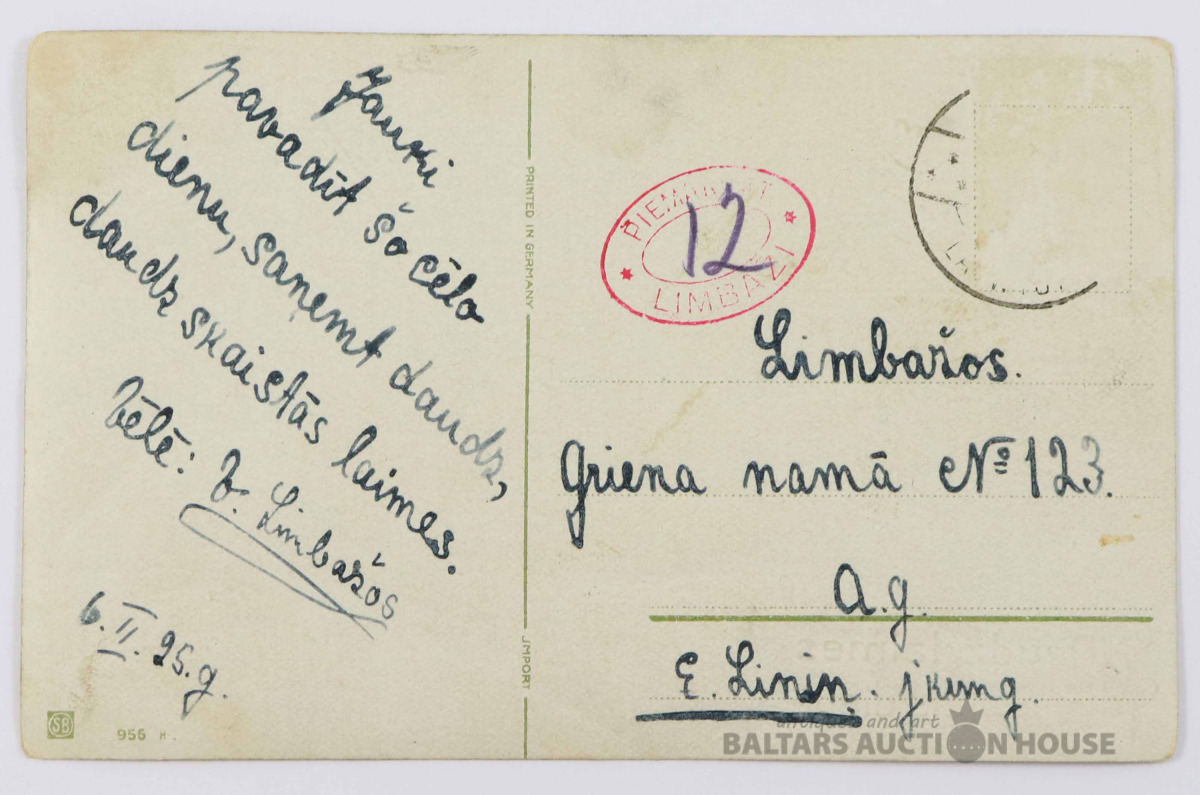 Jauki
pavadīt šo cēlo
dienu, saņemt daudz,
daudz skaistās laimes.
vēlē: V. Limbažos
6.II.25.g.
SB
956 H.
PRINTED IN GERMANY
IMPORT
PIEMAKSĀT
12
LIMBAŽI
Limbažos.
Griena namā № 123.
A.g.
E. Liniņ. jkung.
antiques and art
BALTARS AUCTION HOUSE